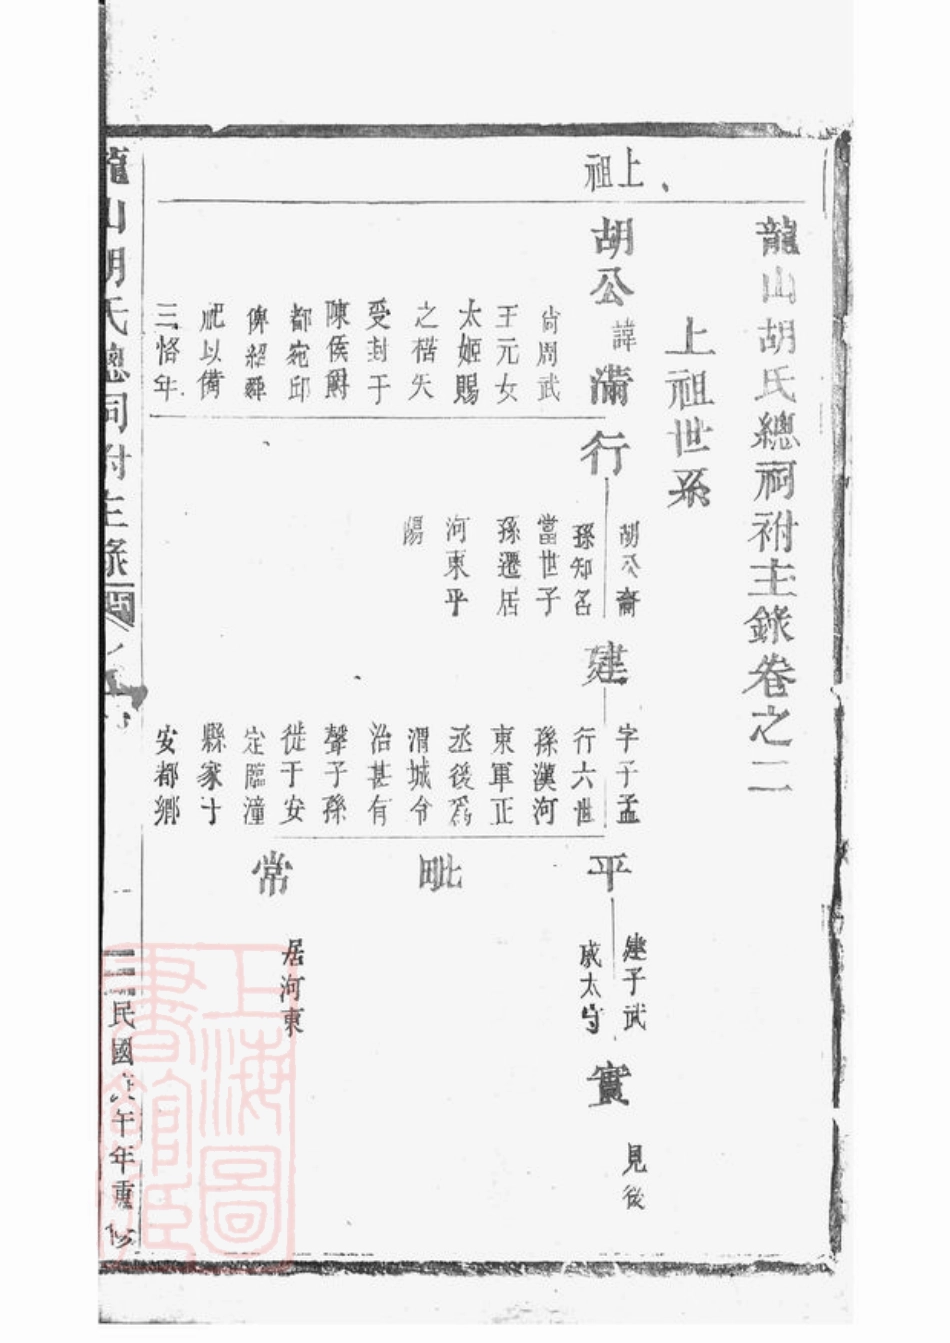 龍山胡氏總祠祔主錄卷之二
上祖世系
上祖
胡公諱滿行
尚周武
王元女
太姬賜
之楛矢
受封于
陳侯爵
都宛邱
俾紹舜
祀以備
三恪年
胡公裔
孫知名
當世子
孫遷居
河東平
陽
建
字子孟
行六世
孫漢河
東軍正
丞後爲
渭城令
治甚有
聲子孫
徙于安
定臨潼
縣家于
安都鄉
平
建子武
威太守
毗
常
居河東
實
見後
龍山胡氏總祠祔主錄
民國午年重修
上海圖書館藏